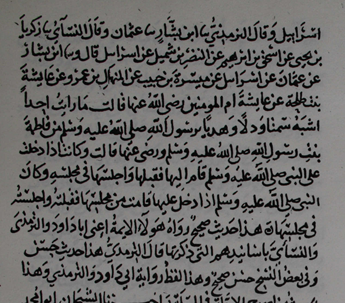 اسرايل وقال الترمذي ثنا ابن بشار ثنا عثمان وقال النسائي ثنا زكريا
بن يحيى عن اسحق بن ابرهيم عن النضر بن شميل عن اسرايل قال وثنا ابن بشار
عن عثمان عن اسرايل عن ميسرة بن حبيب عن المنهال بن عمرو عن عايشة
بنت طلحة عن عايشة ام المومنين رضي الله عنها قالت ما رايت احدا
اشبه سمتا ودلا وهديا برسول الله صلى الله عليه وسلم من فاطمة
بنت رسول الله صلى الله عليه وسلم ورضي عنها قالت وكانت اذا دخلت
على النبي صلى الله عليه وسلم قام اليها فقبلها واجلسها في مجلسه وكان
النبي صلى الله عليه وسلم اذا دخل عليها قامت من مجلسها فقبلته واجلسته
في مجلسها هذا حديث صحيح رواه هولاء الايمة اعني ابا داود والترمذي
والنسائي باسانيدهم التي ذكرتها قال الترمذي هذا حديث حسن
وفي بعض النسخ حسن صحيح وهذا لفظ رواية ابي داود والترمذي وهذا